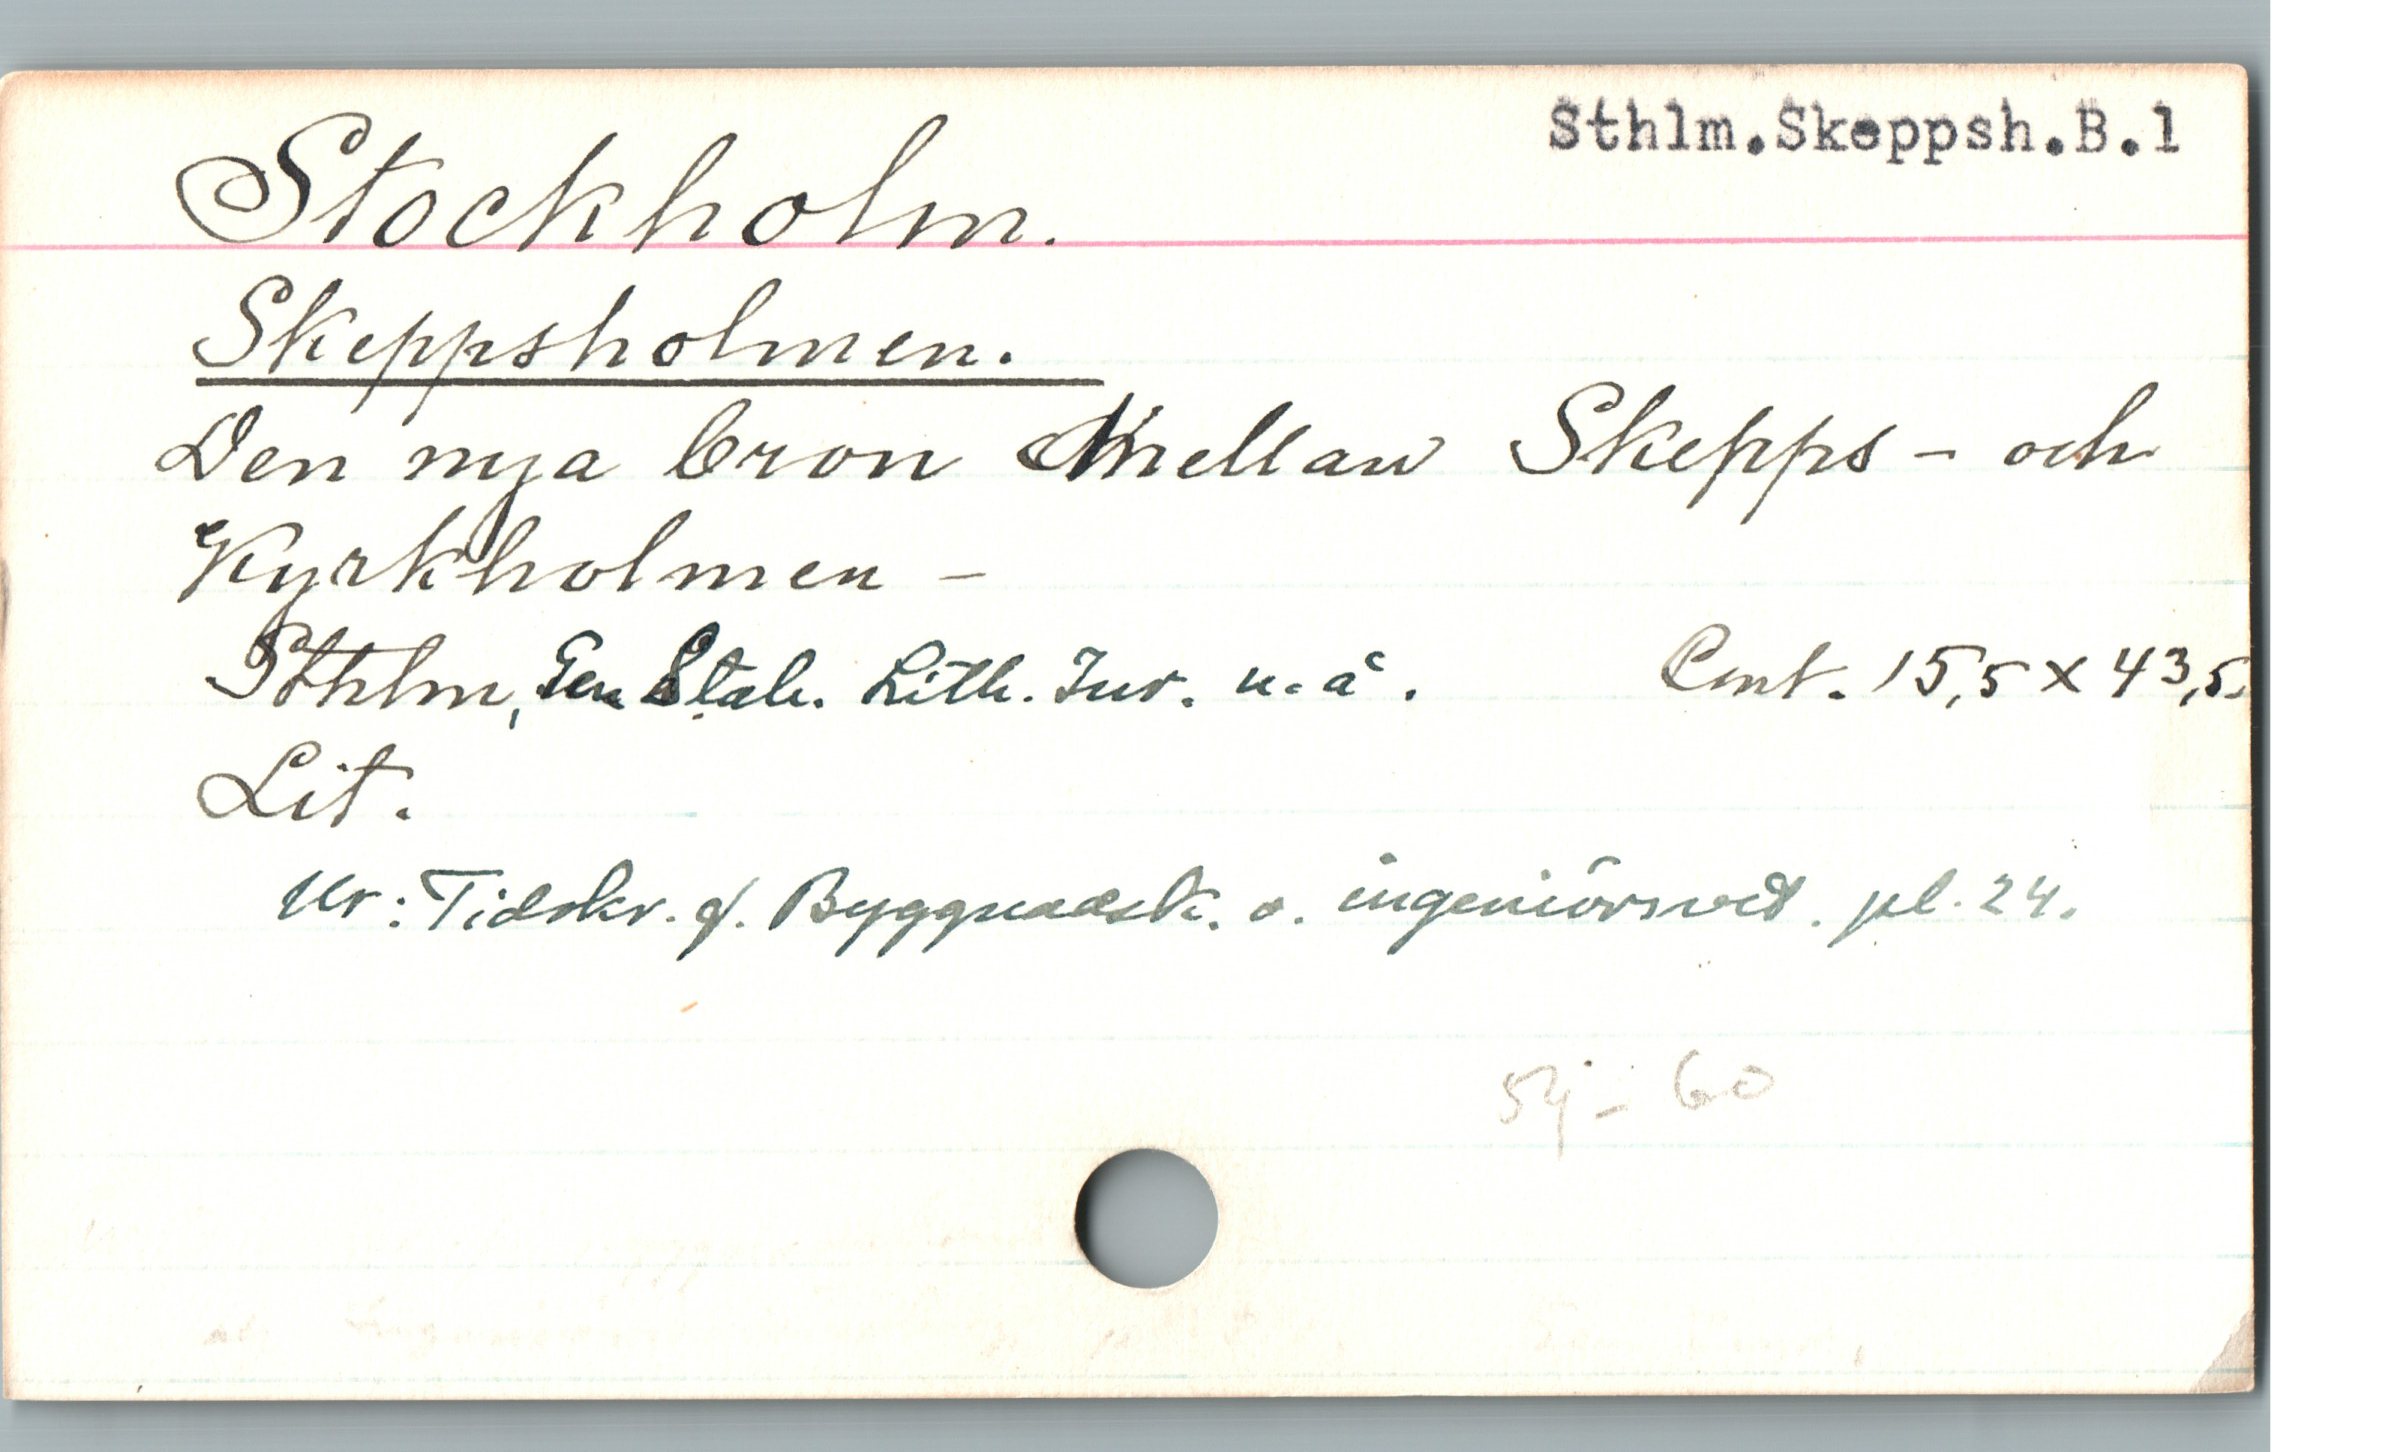 Sthlm.Skeppsh.B.1
Stockholm.
Skeppsholmen.
Den nya bron Mellan Skepps - och
Kyrkholmen -
Sthlm, Gen Stab. Lith. Inr. u. å. Cmt. 15,5 x 43,5.
Lit.
Ur: Tidskr. f. Byggnadsk. o. ingeniörsvet. pl. 24.